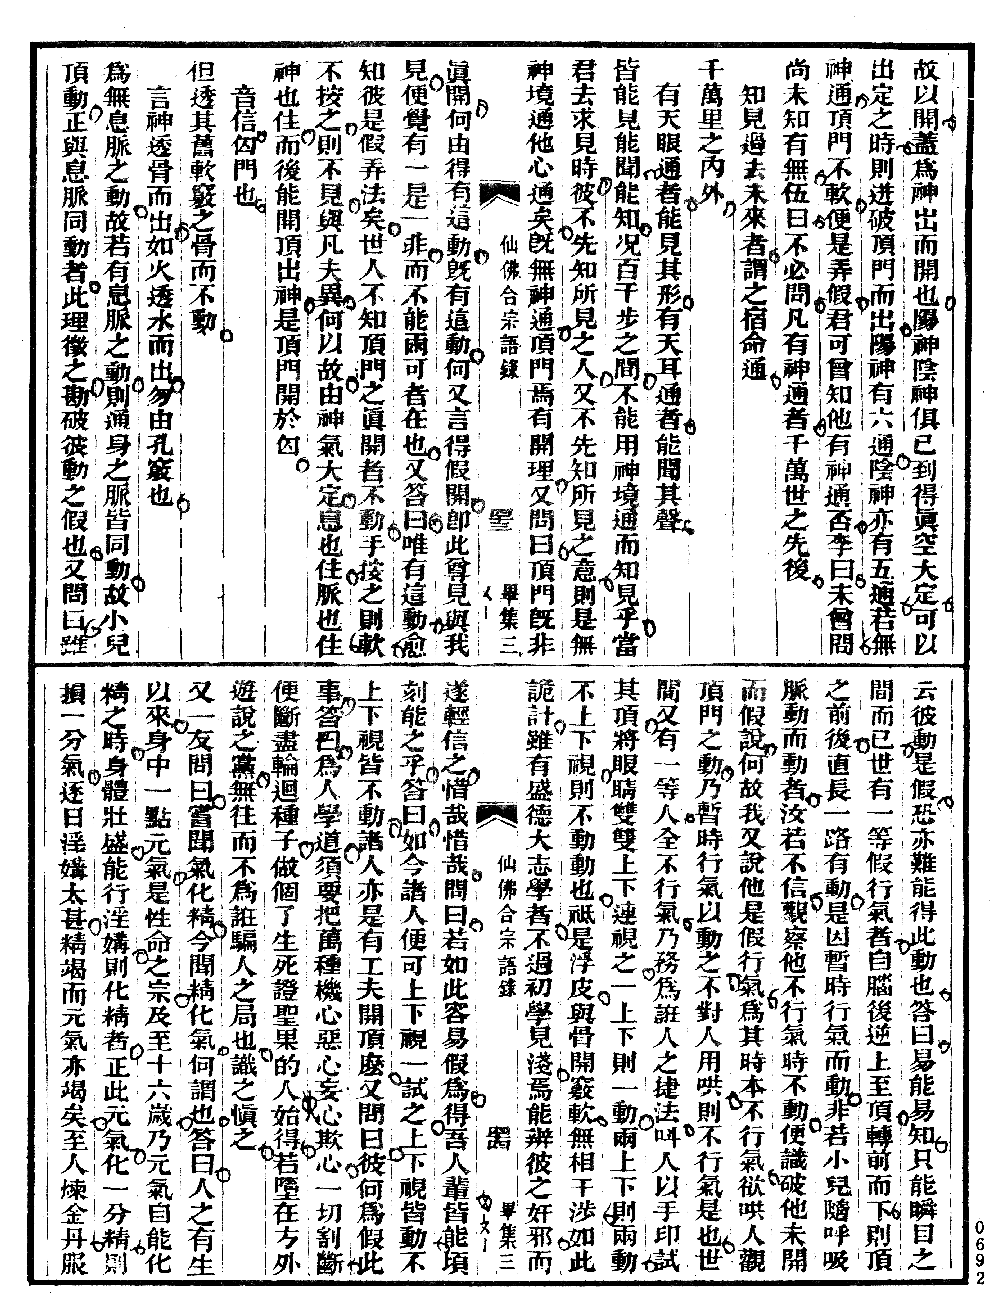 故以開蓋爲神出而開也陽神陰神俱已到得眞空大定可以
出定之時則迸破頂門而出陽神有六通陰神亦有五通若無
神通頂門不軟便是弄假君可曾知他有神通否李曰未曾問
尚未知有無伍曰不必問凡有神通者千萬世之先後
知見過去未來者謂之宿命通
千萬里之內外
有天眼通者能見其形有天耳通者能聞其聲
皆能見能聞能知况百千步之間不能用神境通而知見乎當
君去求見時彼不先知所見之人又不先知所見之意則是無
神境通他心通矣旣無神通頂門焉有開理又問曰頂門旣非
仙佛合宗語錄
畢集三
眞開何由得有這動旣有這動何又言得假開卽此尊見與我
見便覺有一是一非而不能兩可者在也又答曰唯有這動愈
知彼是假弄法矣世人不知頂門之眞開者不動手按之則軟
不按之則不見與凡夫異何以故由神氣大定息也住脈也住
神也住而後能開頂出神是頂門開於囟
音信囟門也
但透其舊軟竅之骨而不動
言神透骨而出如火透水而出勿由孔竅也
爲無息脈之動故若有息脈之動則通身之脈皆同動故小兒
頂動正與息脈同動者此理徵之勘破彼動之假也又問曰雖
云彼動是假恐亦難能得此動也答曰易能易知只能瞬目之
間而已世有一等假行氣者自腦後逆上至頂轉前而下則頂
之前後直長一路有動是因暫時行氣而動非若小兒隨呼吸
脈動而動者汝若不信觀察他不行氣時不動便識破他未開
而假說何故我又說他是假行氣爲其時本不行氣欲哄人觀
頂門之動乃暫時行氣以動之不對人用哄則不行氣是也世
間又有一等人全不行氣乃務爲誑人之捷法叫人以手印試
其頂將眼睛雙雙上下連視之一上下則一動兩上下則兩動
不上下視則不動動也祗是浮皮與骨開竅軟無相干涉如此
詭計雖有盛德大志學者不過初學見淺焉能辨彼之奸邪而
仙佛合宗語錄
畢集三
遂輕信之惜哉惜哉問曰若如此容易假爲得吾人輩皆能頃
刻能之乎答曰如今諸人便可上下視一試之上下視皆動不
上下視皆不動諸人亦是有工夫開頂麽又問曰彼何爲假此
事答曰爲人學道須要把萬種機心惡心妄心欺心一切割斷
便斷盡輪迴種子做個了生死證聖果的人始得若墮在方外
遊說之黨無往而不爲誑騙人之局也識之愼之
又一友問曰嘗聞氣化精今聞精化氣何謂也答曰人之有生
以來身中一點元氣是性命之宗及至十六歲乃元氣自能化
精之時身體壯盛能行淫媾則化精者正此元氣化一分精則
損一分氣逐日淫媾太甚精竭而元氣亦竭矣至人煉金丹服
0692